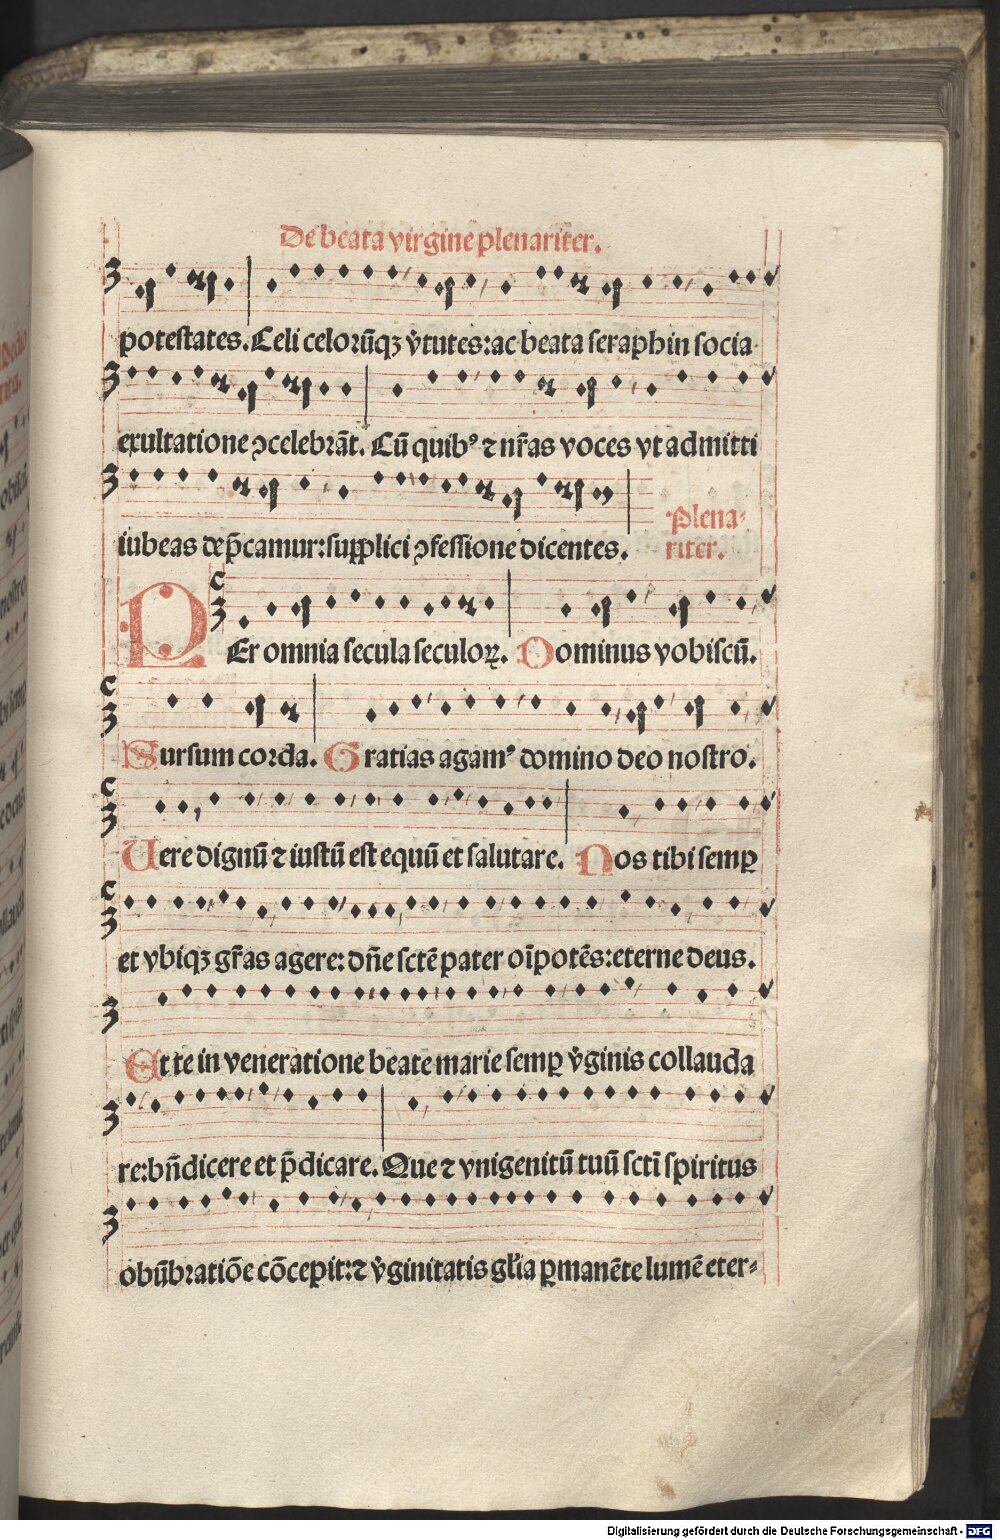 De beata virgine plenariter.
potestates. Celi celorūqꝫ v̓tutes: ac beata seraphin socia
exultatione ꝯcelebrāt. Cū quibꝰ ⁊ nr̄as voces vt admitti
iubeas dep̄camur: supplici ꝯfessione dicentes.
Plena-
riter.
PEr omnia secula seculoꝝ. Dominus vobiscū.
Sursum corda. Gratias agamꝰ domino deo nostro.
Uere dignū ⁊ iustū est equū et salutare. Nos tibi semꝑ
et vbiqꝫ gr̄as agere: dn̄e sctē pater oīpotēs: eterne deus.
Et te in veneratione beate marie semꝑ v̓ginis collauda
re: bn̄dicere et p̄dicare. Que ⁊ vnigenitū tuū sctī spiritus
obūbratiōe cōcepit: ⁊ v̓ginitatis gl̓ia ꝑmanēte lumē eter-
Digitalisierung gefördert durch die Deutsche Forschungsgemeinschaft - DFG